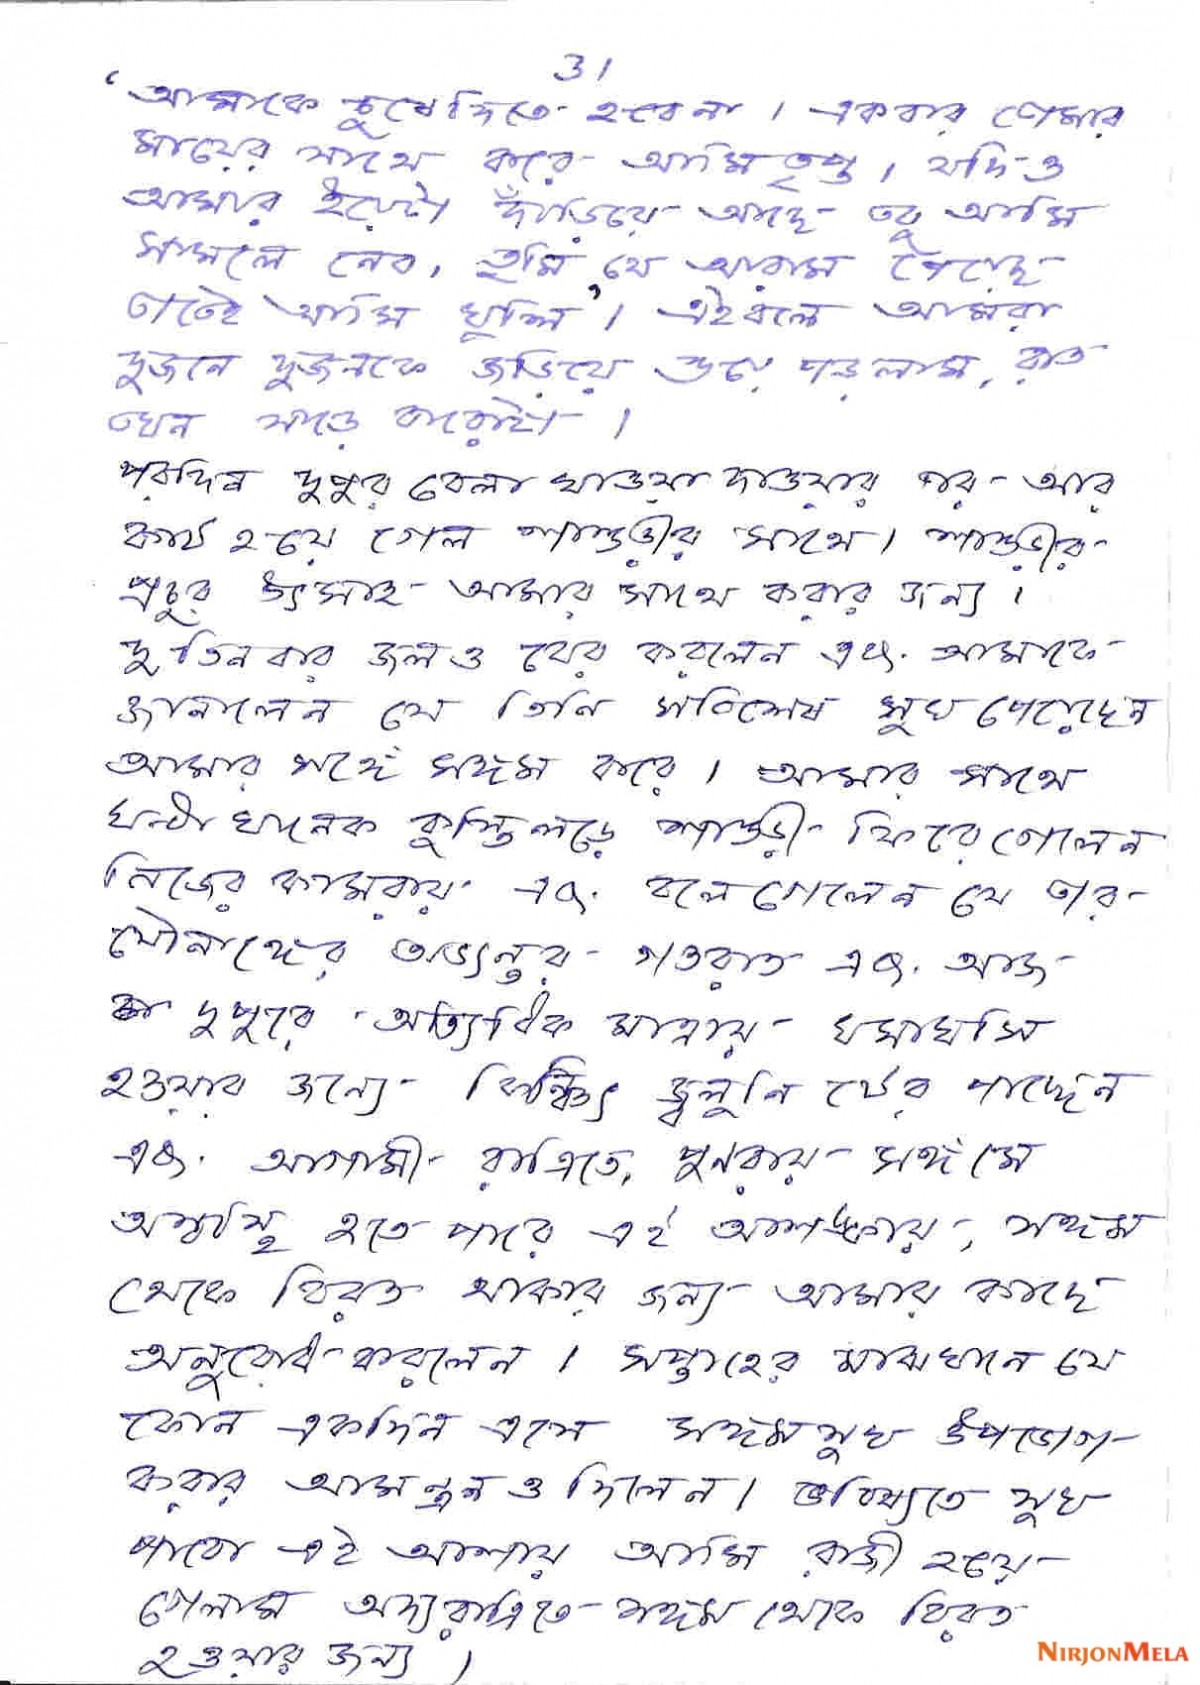 ৩১
‘আমাকে চুষে দিতে হবেনা। একবার তোমার
মায়ের সাথে করে আমি তৃপ্ত। যদিও
আমার ইয়েটা দাঁড়িয়ে আছে তবু আমি
সামলে নেব, তুমি যে আরাম পেয়েছ
তাতেই আমি খুশি’। এইবলে আমরা
দুজনে দুজনকে জড়িয়ে শুয়ে পড়লাম, রাত
তখন সাড়ে বারোটা।
পরদিন দুপুর বেলা খাওয়া দাওয়ার পর আর
কাট হয়ে গেল শাশুড়ীর সাথে। শাশুড়ীর
প্রচুর উৎসাহ আমার সাথে করার জন্য।
দু তিনবার জলও বের করলেন এবং আমাকে
জানালেন যে তিনি সবিশেষ সুখ পেয়েছেন
আমার সঙ্গে সঙ্গম করে। আমার সাথে
ঘন্টা খানেক কুস্তি লড়ে শাশুড়ী ফিরে গেলেন
নিজের কামরায় এবং বলে গেলেন যে তার
যৌনাঙ্গের অভ্যন্তর গতরাত এবং আজ
দুপুরে অত্যিধিক মাত্রায় ঘসাঘসি
হওয়ার জন্যে কিঞ্চিৎ জ্বলুনি টের পাচ্ছেন
এবং আগামী রাত্রিতে, পুনরায় সঙ্গমে
অস্বস্থি হতে পারে এই আশঙ্কায়, সঙ্গম
থেকে বিরত থাকার জন্য আমার কাছে
অনুরোধ করলেন। সপ্তাহের মাঝখানে যে
কোন একদিন এসে সঙ্গমসুখ উপভোগ
করার আমন্ত্রনও দিলেন। ভবিষ্যতে সুখ
পাবো এই আশায় আমি রাজী হয়ে
গেলাম অদ্যরাত্রিতে সঙ্গম থেকে বিরত
হওয়ার জন্য।
NIRJONMELA